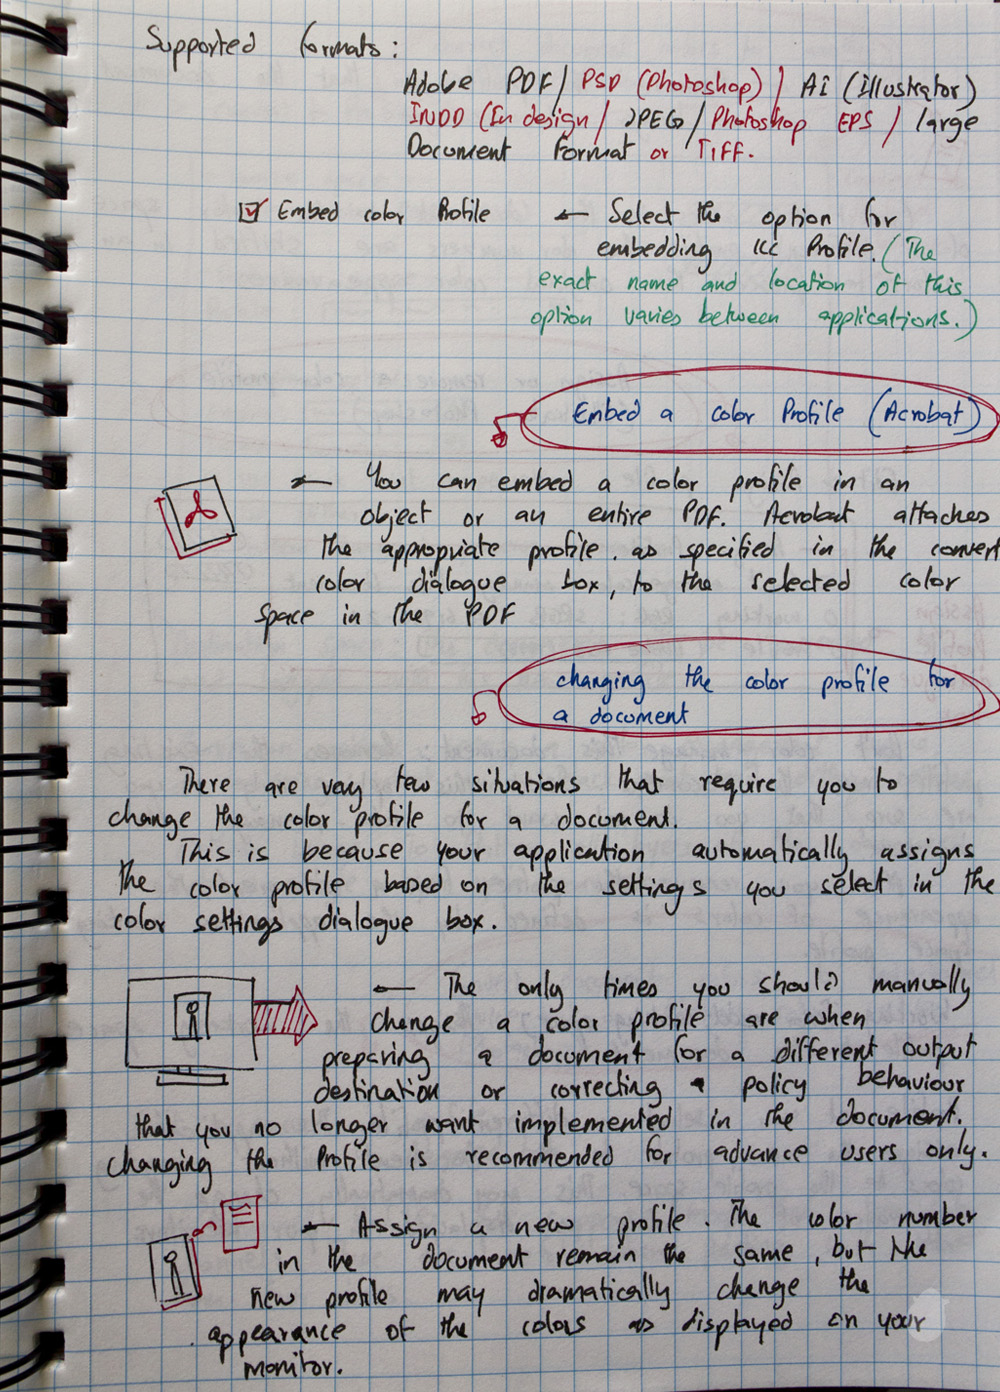 Supported formats:
Adobe PDF/ PSD (Photoshop) / AI (Illustrator)
INDD (In design / JPEG / Photoshop EPS / large
Document Format or TIFF.
Embed color Profile ← Select the option for
embedding ICC Profile. (The
exact name and location of this
option varies between applications.)
Embed a color Profile (Acrobat)
← You can embed a color profile in an
object or an entire PDF. Acrobat attaches
the appropriate profile. as specified in the convert
color dialogue box, to the selected color
space in the PDF
changing the color profile for
a document
There are very few situations that require you to
change the color profile for a document.
This is because your application automatically assigns
the color profile based on the settings you select in the
color settings dialogue box.
← The only times you should manually
change a color profile are when
preparing a document for a different output
destination or correcting a policy behaviour
that you no longer want implemented in the document.
changing the Profile is recommended for advance users only.
← Assign a new profile. The color number
in the document remain the same, but the
new profile may dramatically change the
appearance of the colors as displayed on your
monitor.